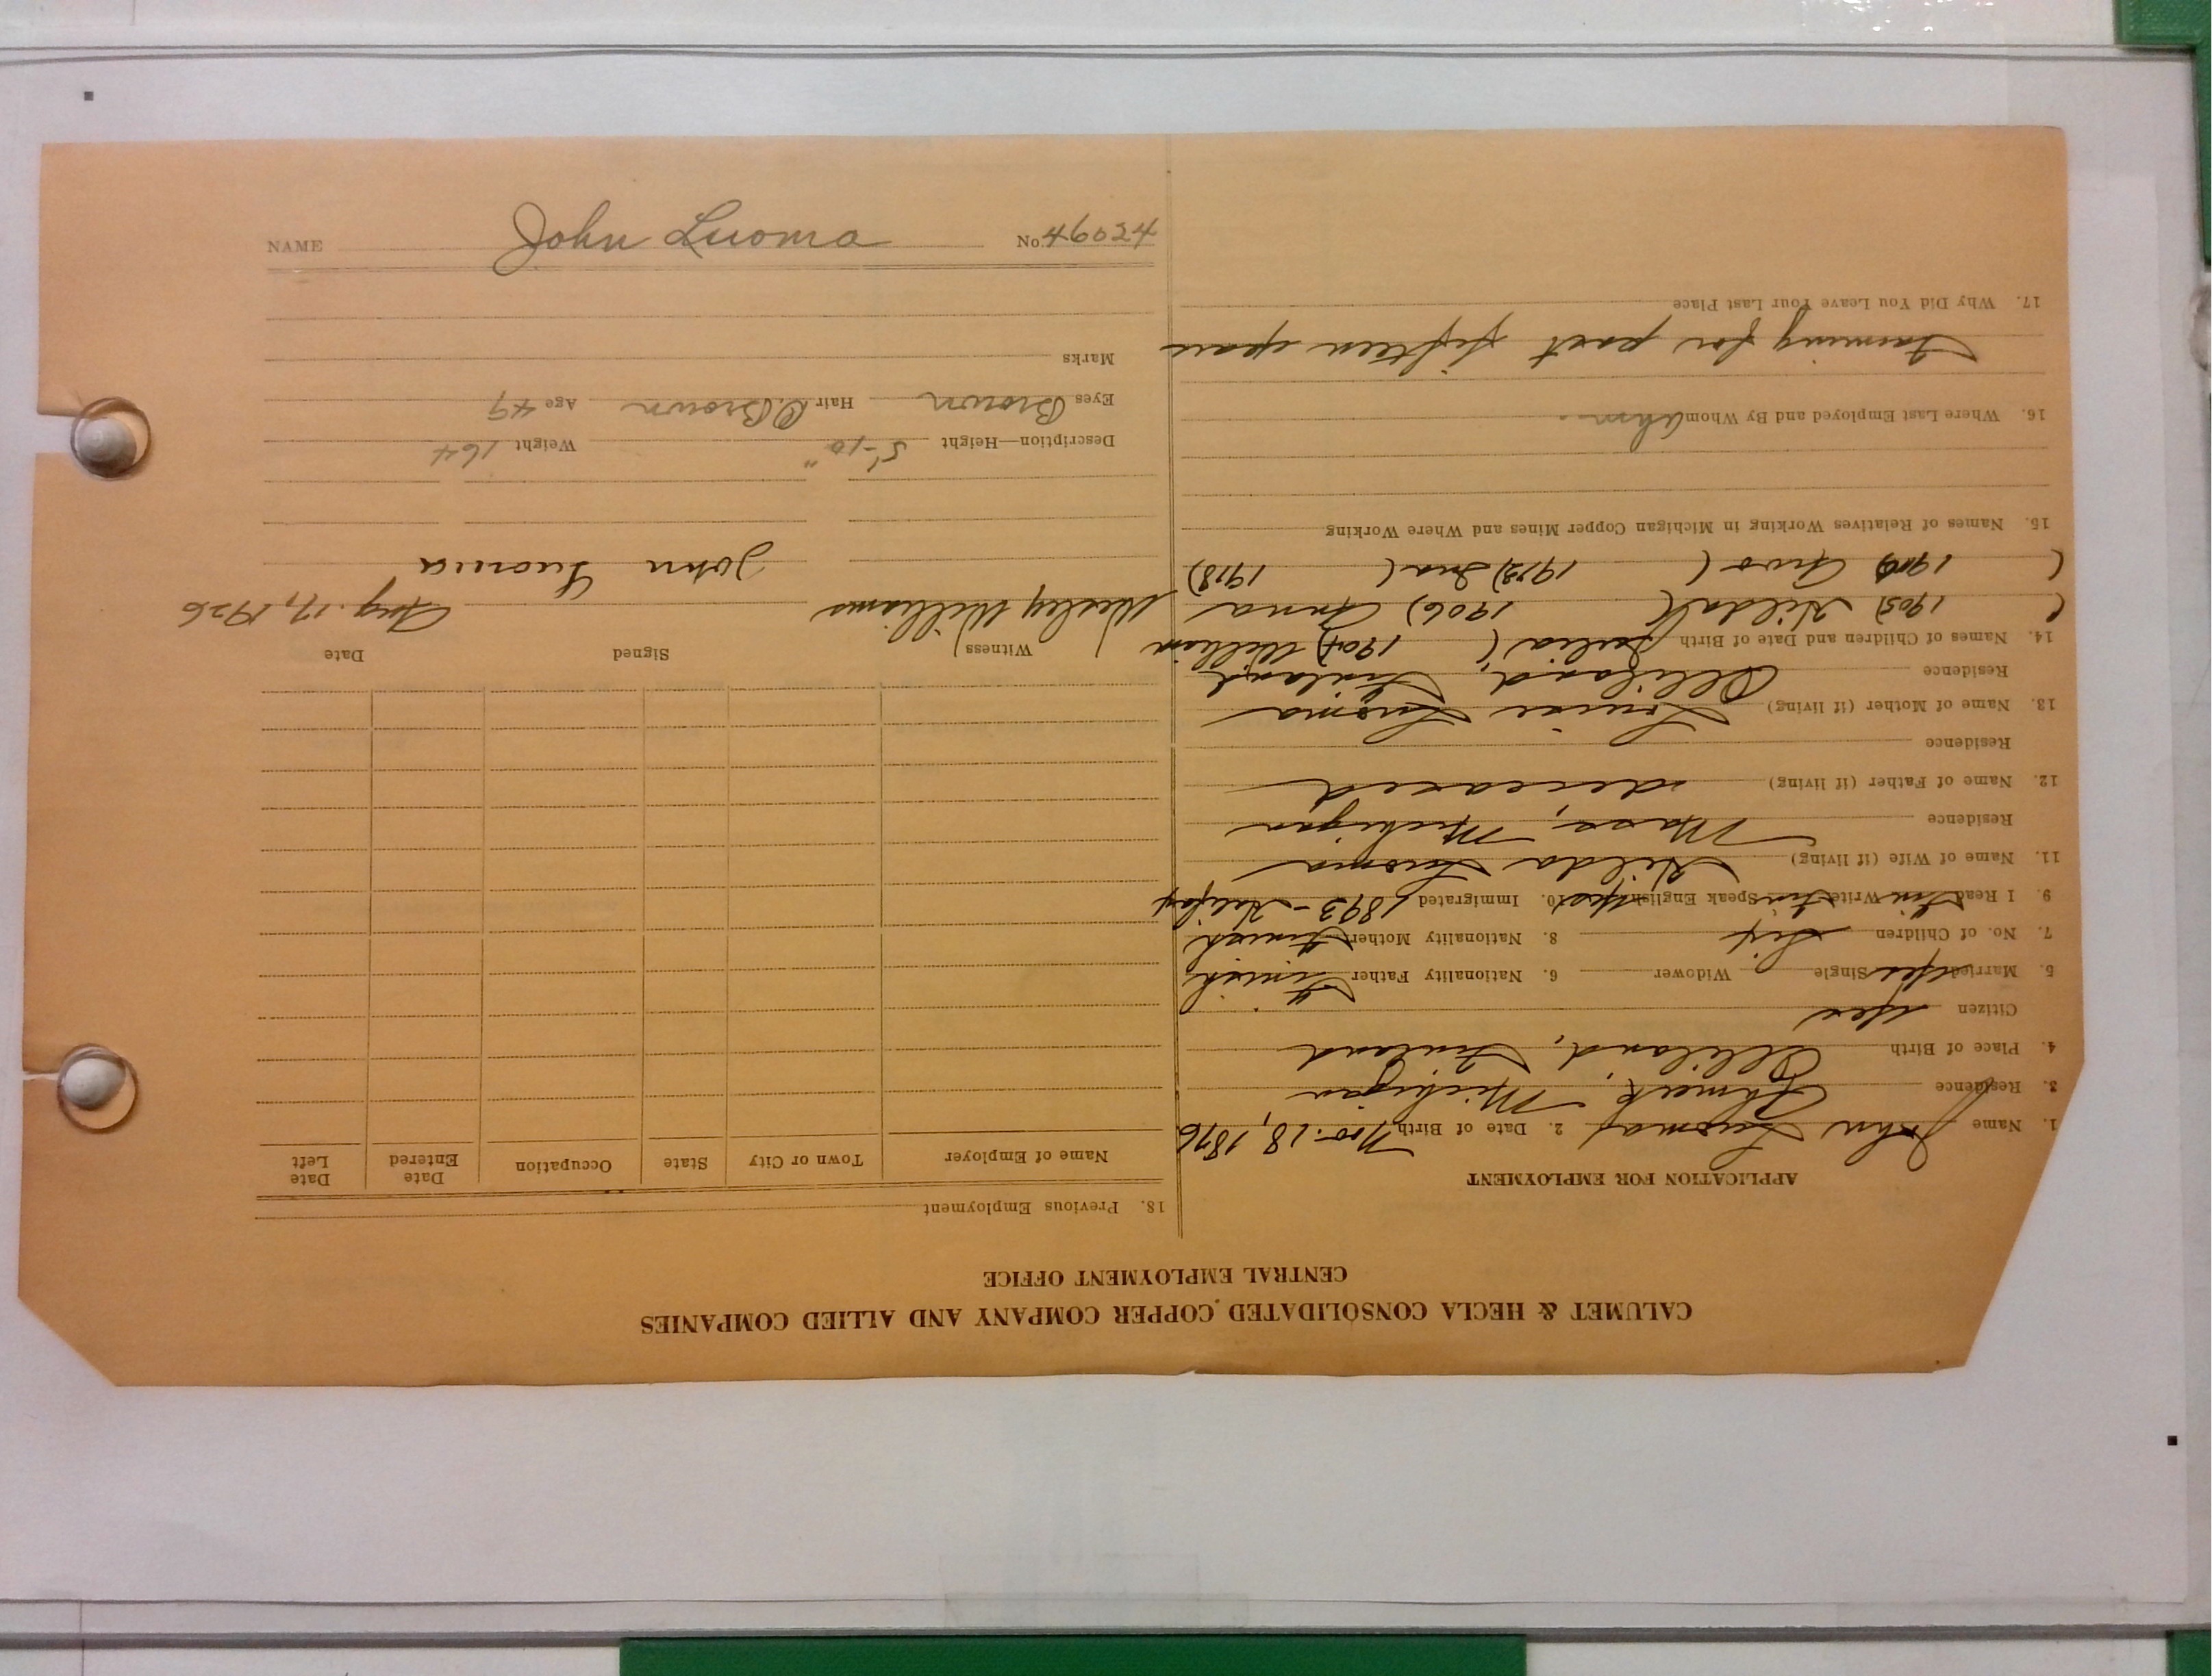 CALUMET & HECLA CONSOLIDATED COPPER COMPANY AND ALLIED COMPANIES
CENTRAL EMPLOYMENT OFFICE
APPLICATION FOR EMPLOYMENT
1. Name John Luoma 2. Date of Birth Nov. 18, 1876
3. Residence Ahmeek, Michigan
4. Place of Birth Finland
Citizen Yes
5. Married Yes Single Widower 6. Nationality Father Finish
7. No. of Children Six 8. Nationality Mother Finish
9. I Read Fin Write Fin Speak English Yes 10. Immigrated 1893 - Halifax
11. Name of Wife (if living) Hilda Luoma
Residence Mass, Michigan
12. Name of Father (if living) deceased
Residence
13. Name of Mother (if living) Louise Luoma
Residence Finland
14. Names of Children and Date of Birth ( 1904) William
( 1905) Hilda ( 1906) Anna
( ( 1912) ( 1918)
15. Names of Relatives Working in Michigan Copper Mines and Where Working
16. Where Last Employed and By Whom Ahm.
Farming for past fifteen years
17. Why Did You Leave Your Last Place
18. Previous Employment
Name of Employer Town or City State Occupation Date Entered Date Left
Witness Signed Date
Wesley Williams John Luoma Aug. 17, 1926
Description—Height 5'-10" Weight 164
Eyes Brown Hair D. Brown Age 49
Marks
NAME John Luoma No. 46024